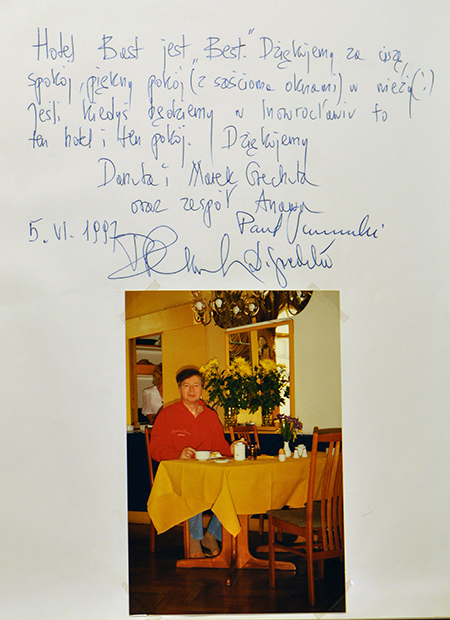 Hotel Bast jest "Best." Dziękujemy za ciszę,
spokój, piękny pokój (z sześcioma oknami) w wieży (!)
Jeśli kiedyś będziemy w Inowrocławiu to
ten hotel i ten pokój. Dziękujemy
Danuta i Marek Grechuta
oraz zespół Anawa
5. VI. 1997